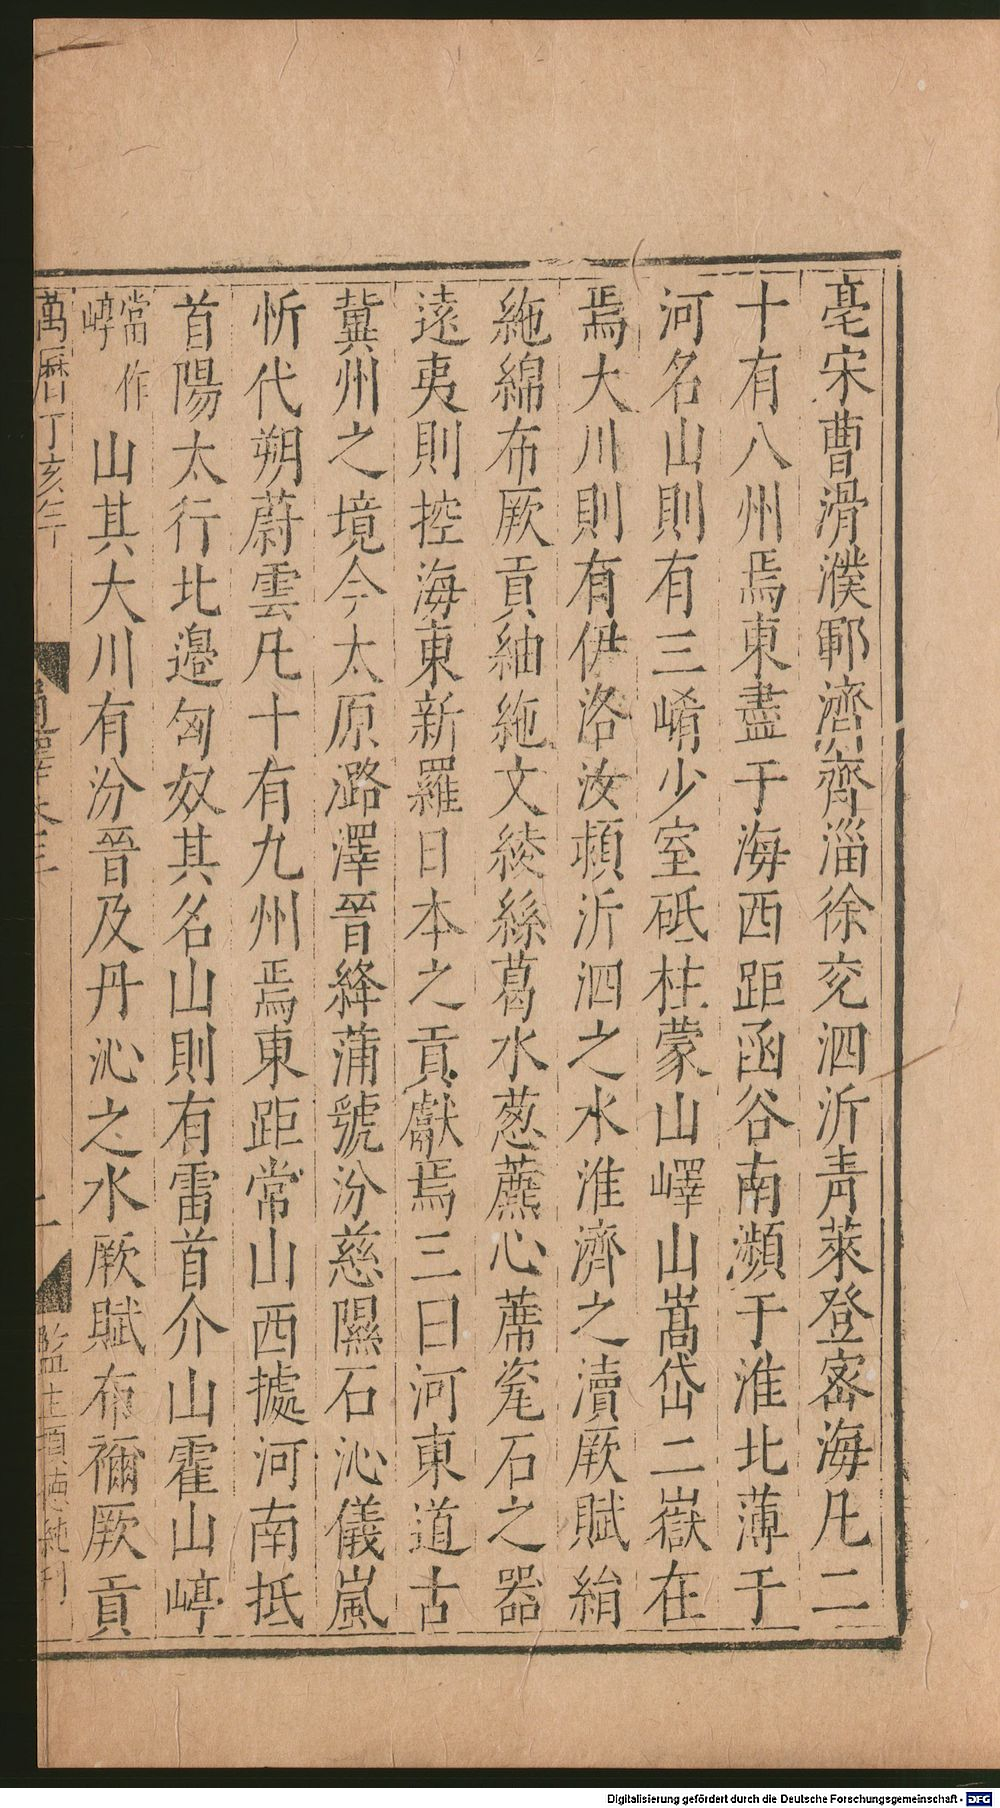 亳宋曹滑濮鄆濟齊淄徐兗泗沂青萊登密海凡二
十有八州焉東盡于海西距函谷南瀕于淮北薄于
河名山則有三崤少室砥柱蒙山嶧山嵩岱二嶽在
焉大川則有伊洛汝頓沂泗之水淮濟之瀆厥賦絹
絁綿布厥貢紬絁文綾絲葛水葱薦心蓆瓷石之器
遠夷則控海東新羅日本之貢獻焉三曰河東道古
冀州之境今太原潞澤晉絳蒲虢汾慈隰石沁儀嵐
忻代朔蔚雲凡十有九州焉東距常山西據河南抵
首陽太行北邉匈奴其名山則有雷首介山霍山崞
當作
崞
山其大川有汾晉及丹沁之水厥賦布襧厥貢
萬曆丁亥年
通譯卷三
監生項德純刊
Digitalisierung gefördert durch die Deutsche Forschungsgemeinschaft - DFG